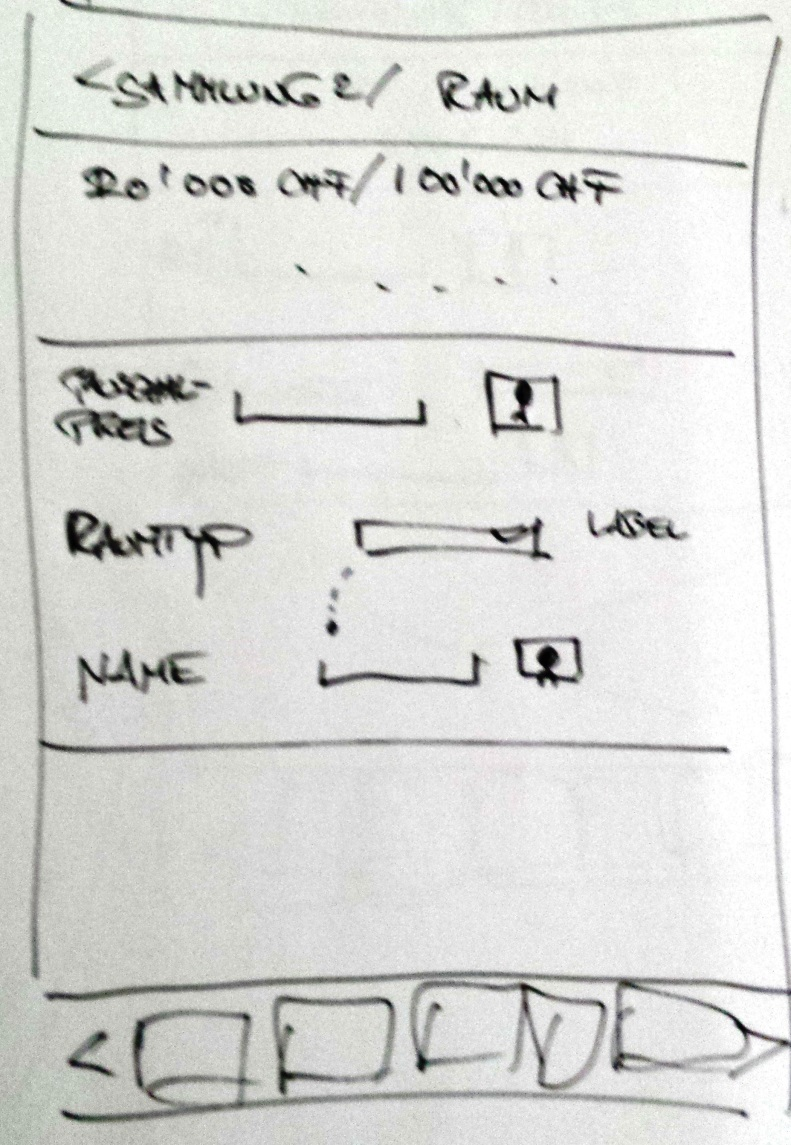 <SAMMLUNG 2/ RAUM
20'000 CHF/100'000 CHF
PAUSCHAL-
PREIS
RAUMTYP LABEL
NAME